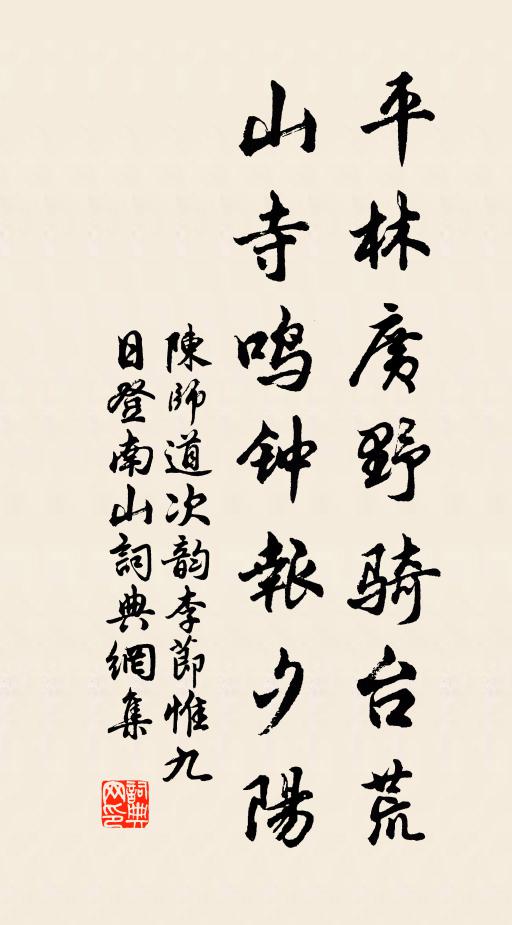 平林廣野骑台荒
山寺鸣钟報夕陽
陳師道次韵李節惟九
日登南山詞典網集
詞典网印